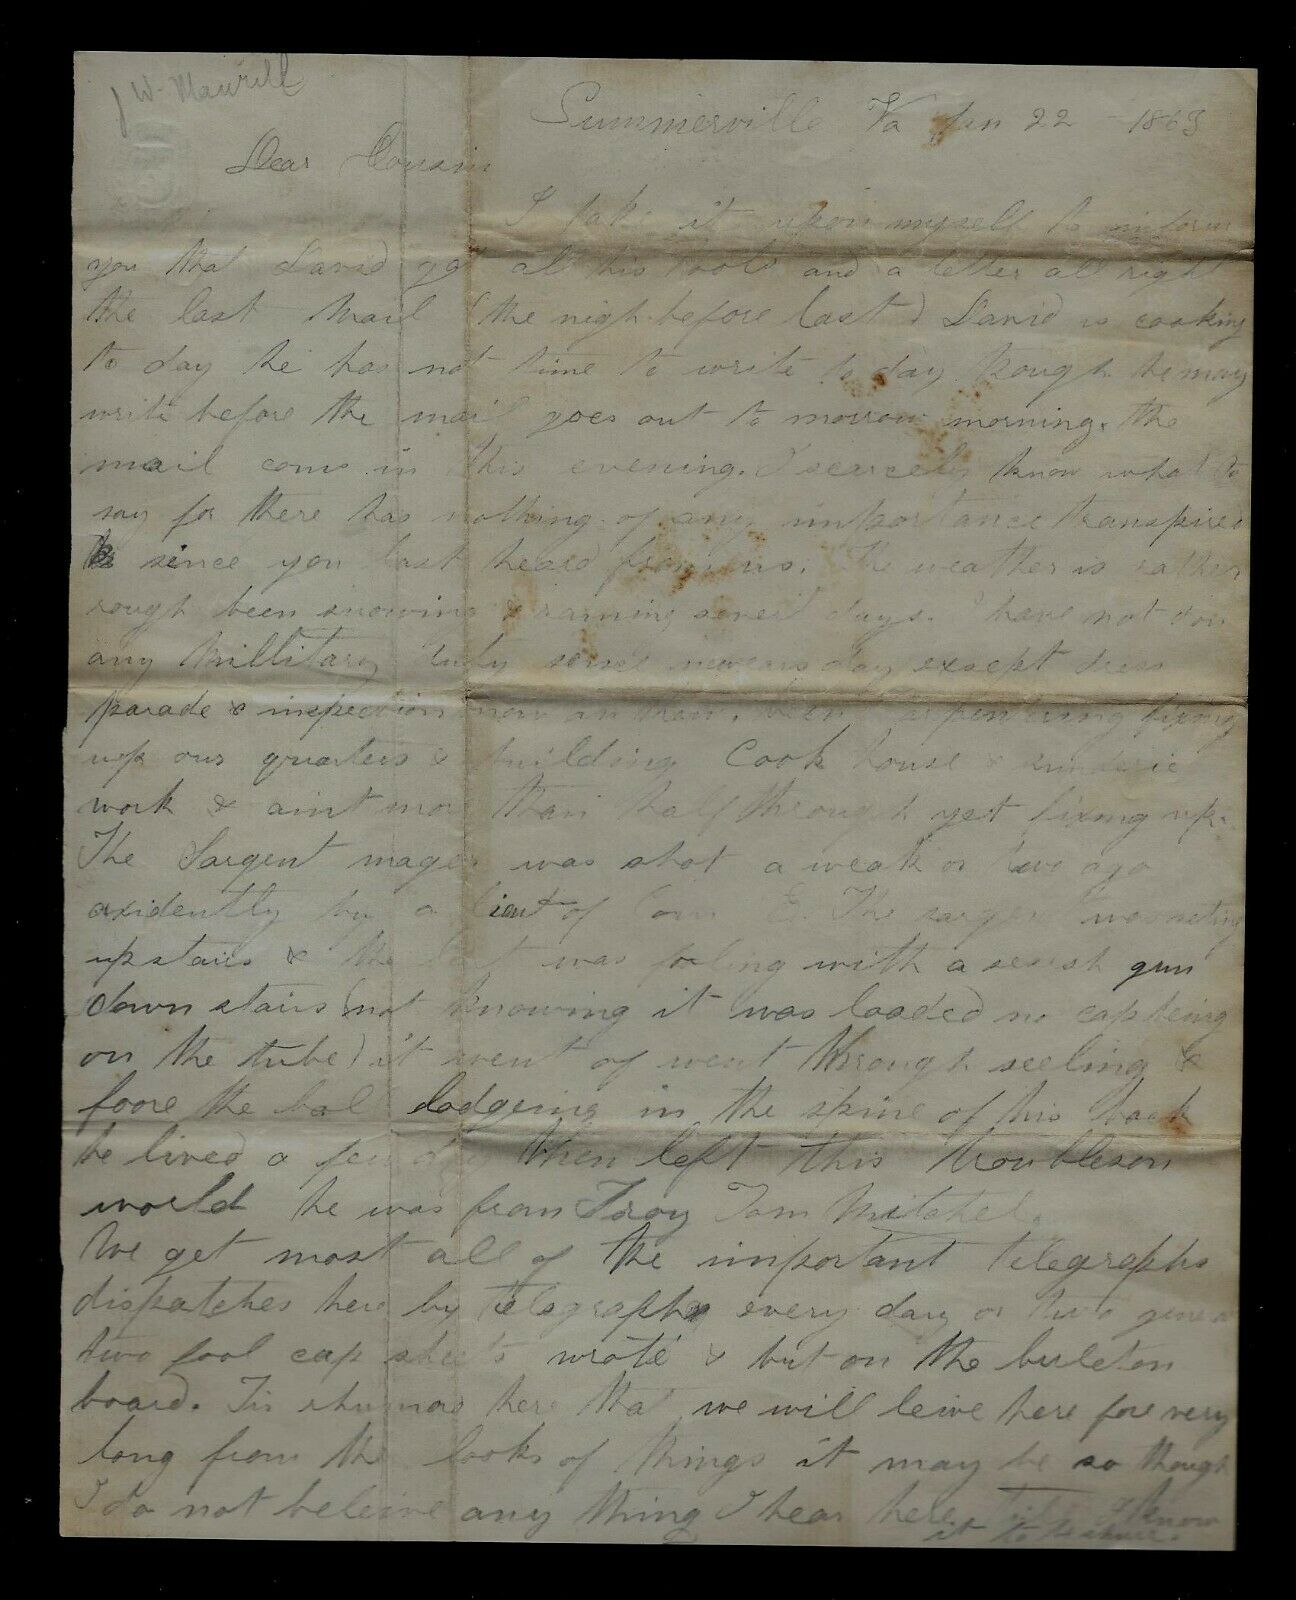 J W. Maurill
Summerville Va Jan 22 - 1863
Dear Cousin
I take it upon myself to inform
you that David got all his boots and a letter all right
the last mail (the nigh before last) David is cooking
to day he has not time to write to day though he may
write before the mail goes out to morrow morning. the
mail coms in this evening. I scarcely know what to
say for there has nothing of any importance transpired
since you last heard from us. The weather is rather
rough been snowing & raining days. I have not don
any Millitary duty newears day except dress
parade & inspection now an than. been carpentering fixing
up our quarters & building Cook house &
work & aint mor than half through yet fixing up.
The Sargent mager was shot a weak or two ago
axidently by a Liut of Com The sargent was
upstairs & the was fooling with a sesesh gun
down stairs (not knowing it was loaded no cap being
on the tube) it went of went through seeling &
foore the bal lodgeing in the spine of his back
he lived a few days then left this troubleson
world he was from Troy Tom Mitchel.
We get most all of the important telegraphs
dispatches here by telegraph every day or two
two fool cap sheets wrote & but on the buleton
board. Tis rhumord here that we will leive here fore very
long from the looks of things it may be so though
I do not beleive any thing I hear here know
it to be